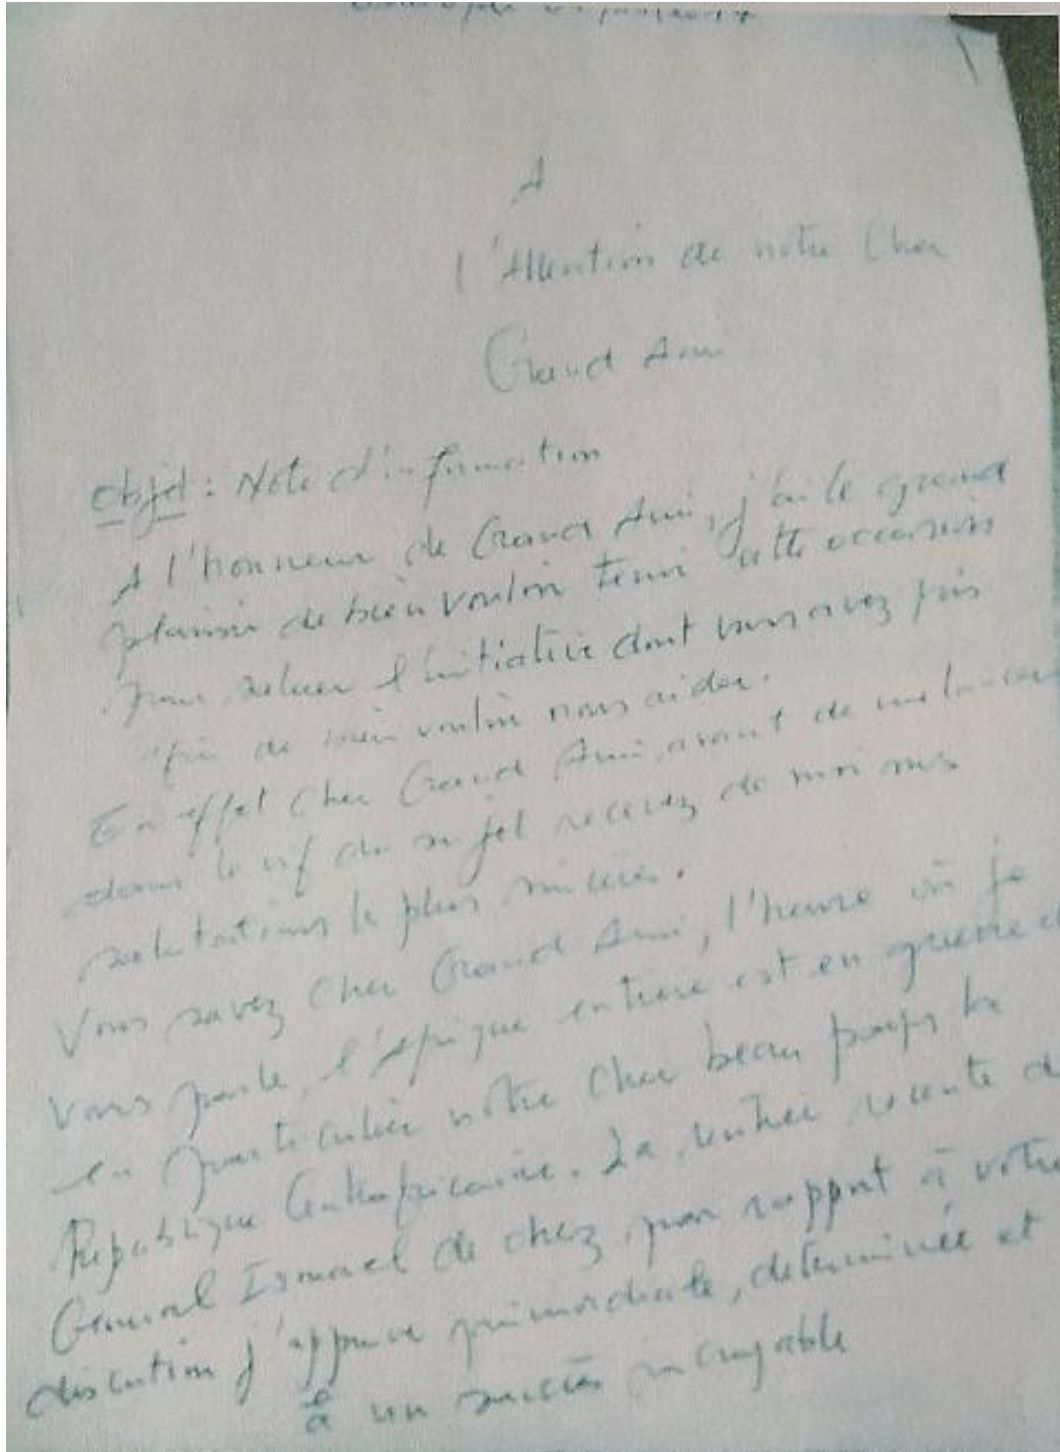 A
l'Attention de notre Cher
Grand Ami
Objet : Note d'information
A l'honneur de Grand Ami, j'ai le grand
plaisir de bien vouloir tenir cette occasion
pour saluer l'initiative dont vous avez pris
afin de bien vouloir nous aider.
En effet Cher Grand Ami, avant de me lancer
dans le vif du sujet recevez de moi mes
salutations le plus sincère.
Vous savez Cher Grand Ami, l'heure où je
vous parle, l'Afrique entière est en guerre
en particulier notre Cher beau pays la
République Centrafricaine. La rentrée recente
General Ismael de chez par rapport à votre
discution j'appuie primordiale, determinée et
à un succès incroyable